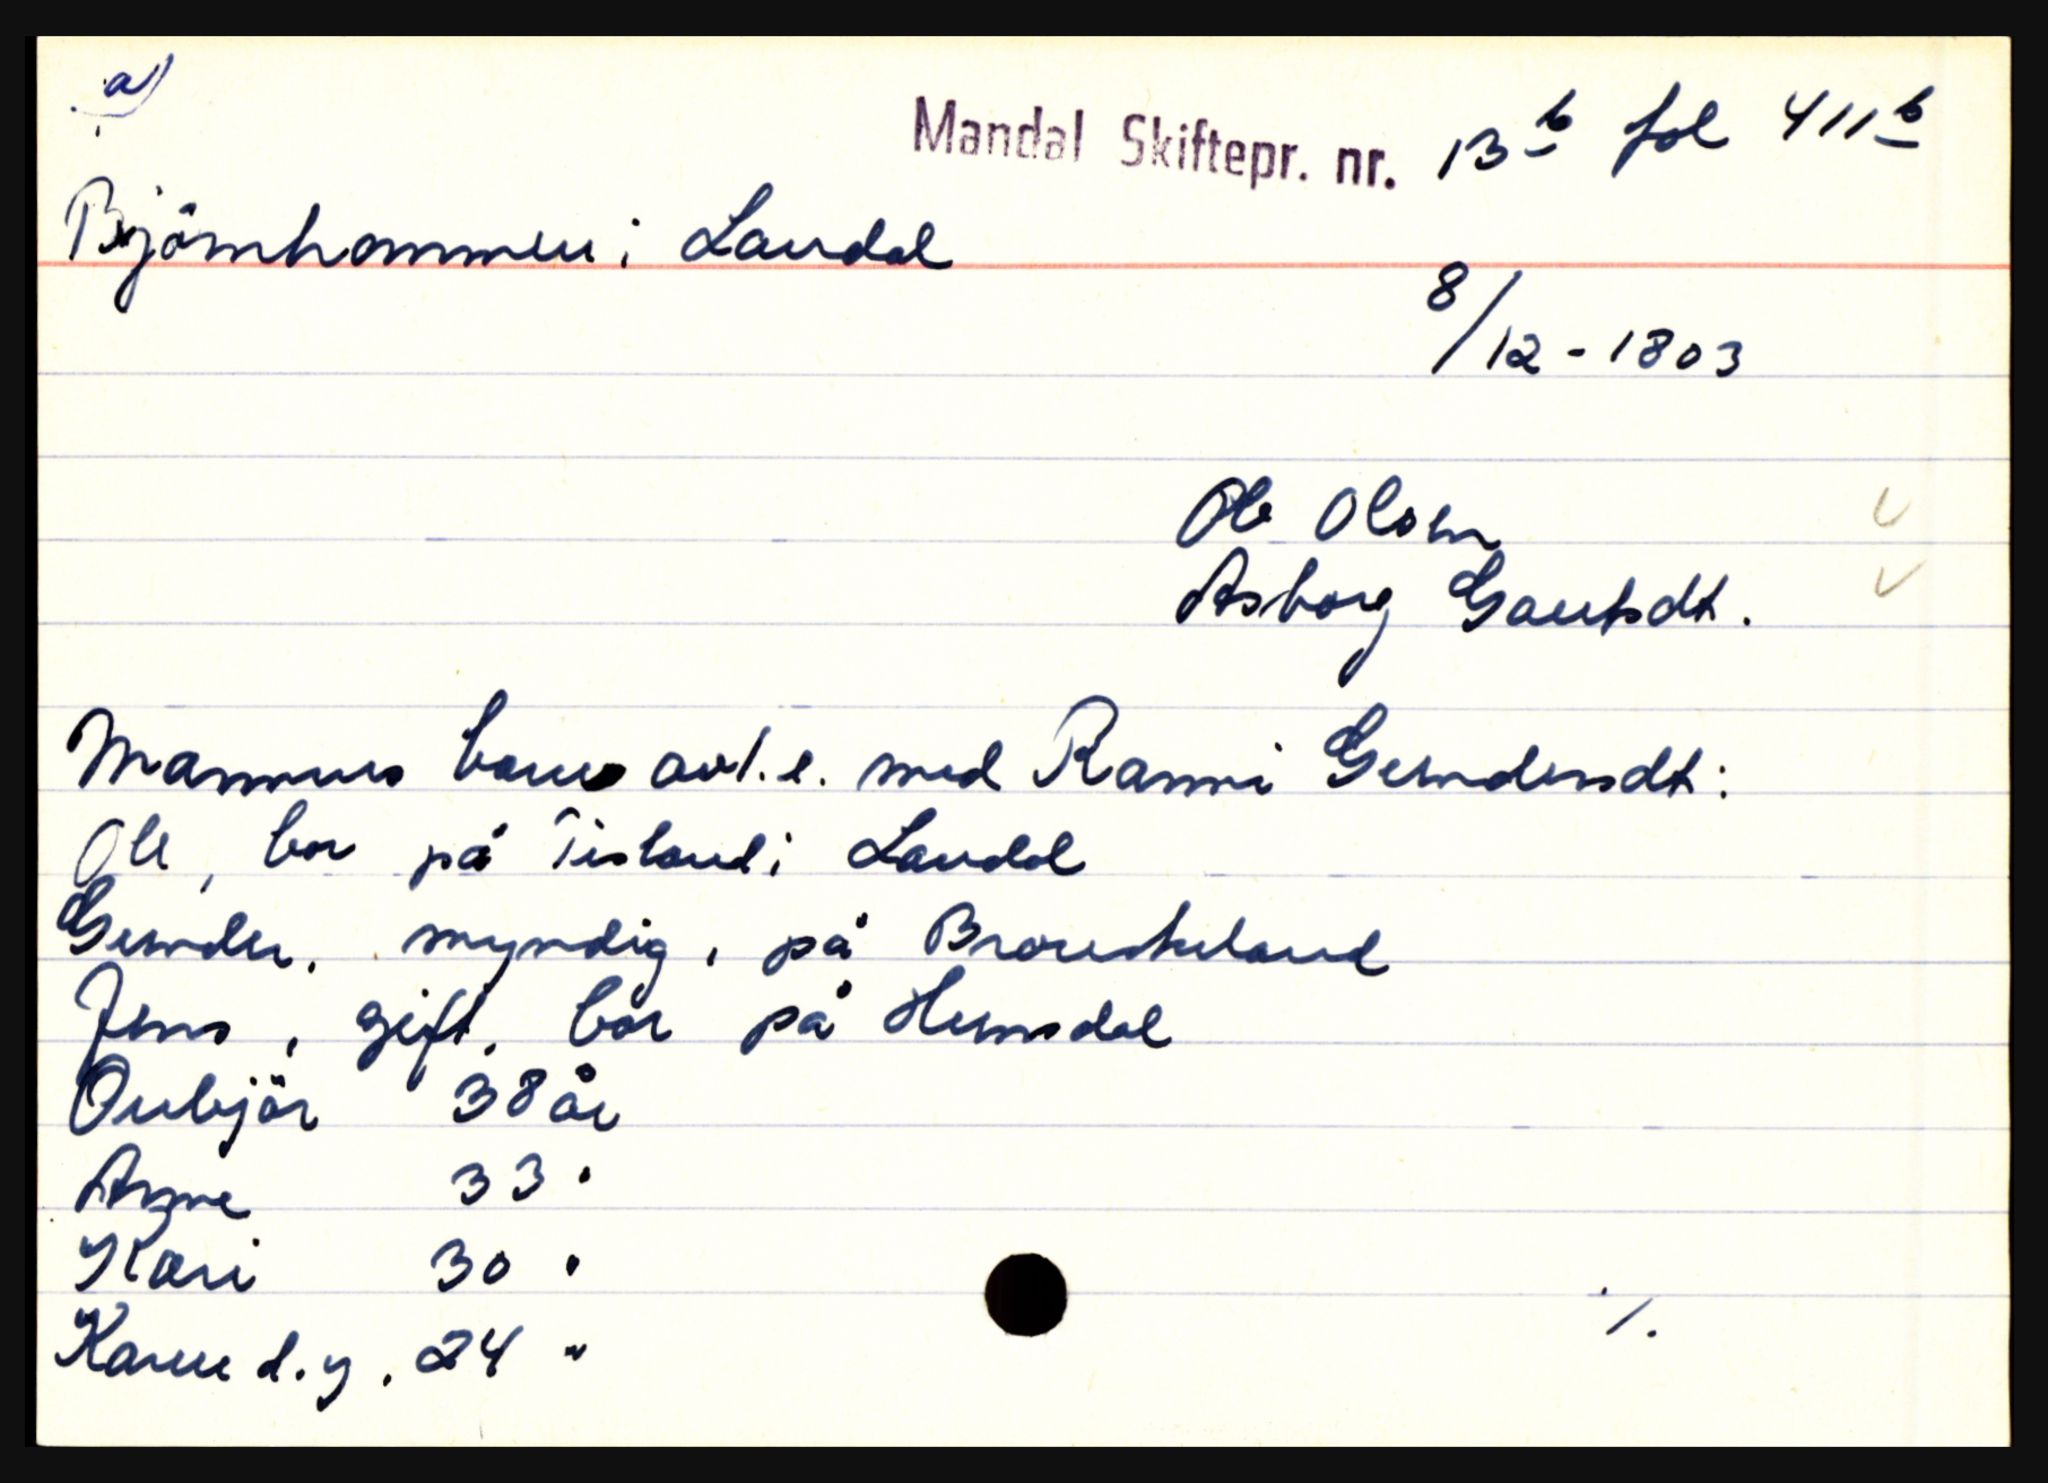 a)
Mandal Skiftepr. nr. 13 b fol 411 b
Bjørnhommen i Laudal
8/12-1803
Ole Olsen
Asborg Gautsdt.
Mannens barn av 1.e. med Ranni Gundersdt:
Ole, bor på Tisland i Laudal
Gunder, myndig, på Brouskeland
Jens, gift, bor på Heimsdal
Ønbjør 38 år
Anne 33 "
Kari 30 "
Karen d.y. 24 "
./.